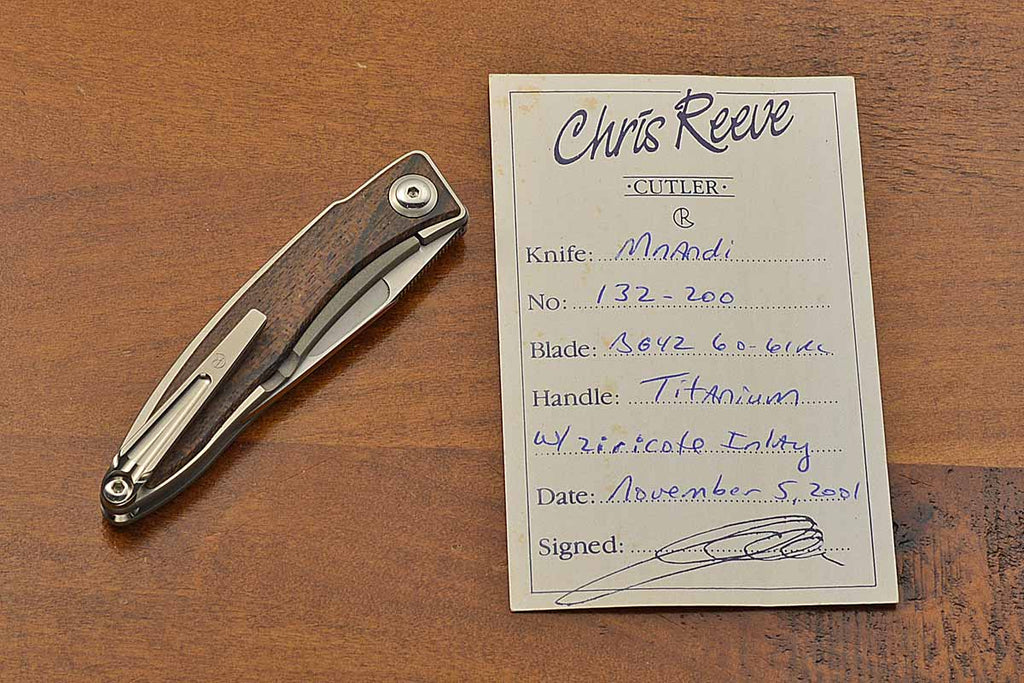 Chris Reeve
·CUTLER·
Knife: Mnandi
No: 132-200
Blade: BG42 60-61RC
Handle: Titanium
w/ ziricote Inlay
Date: November 5, 2001
Signed: